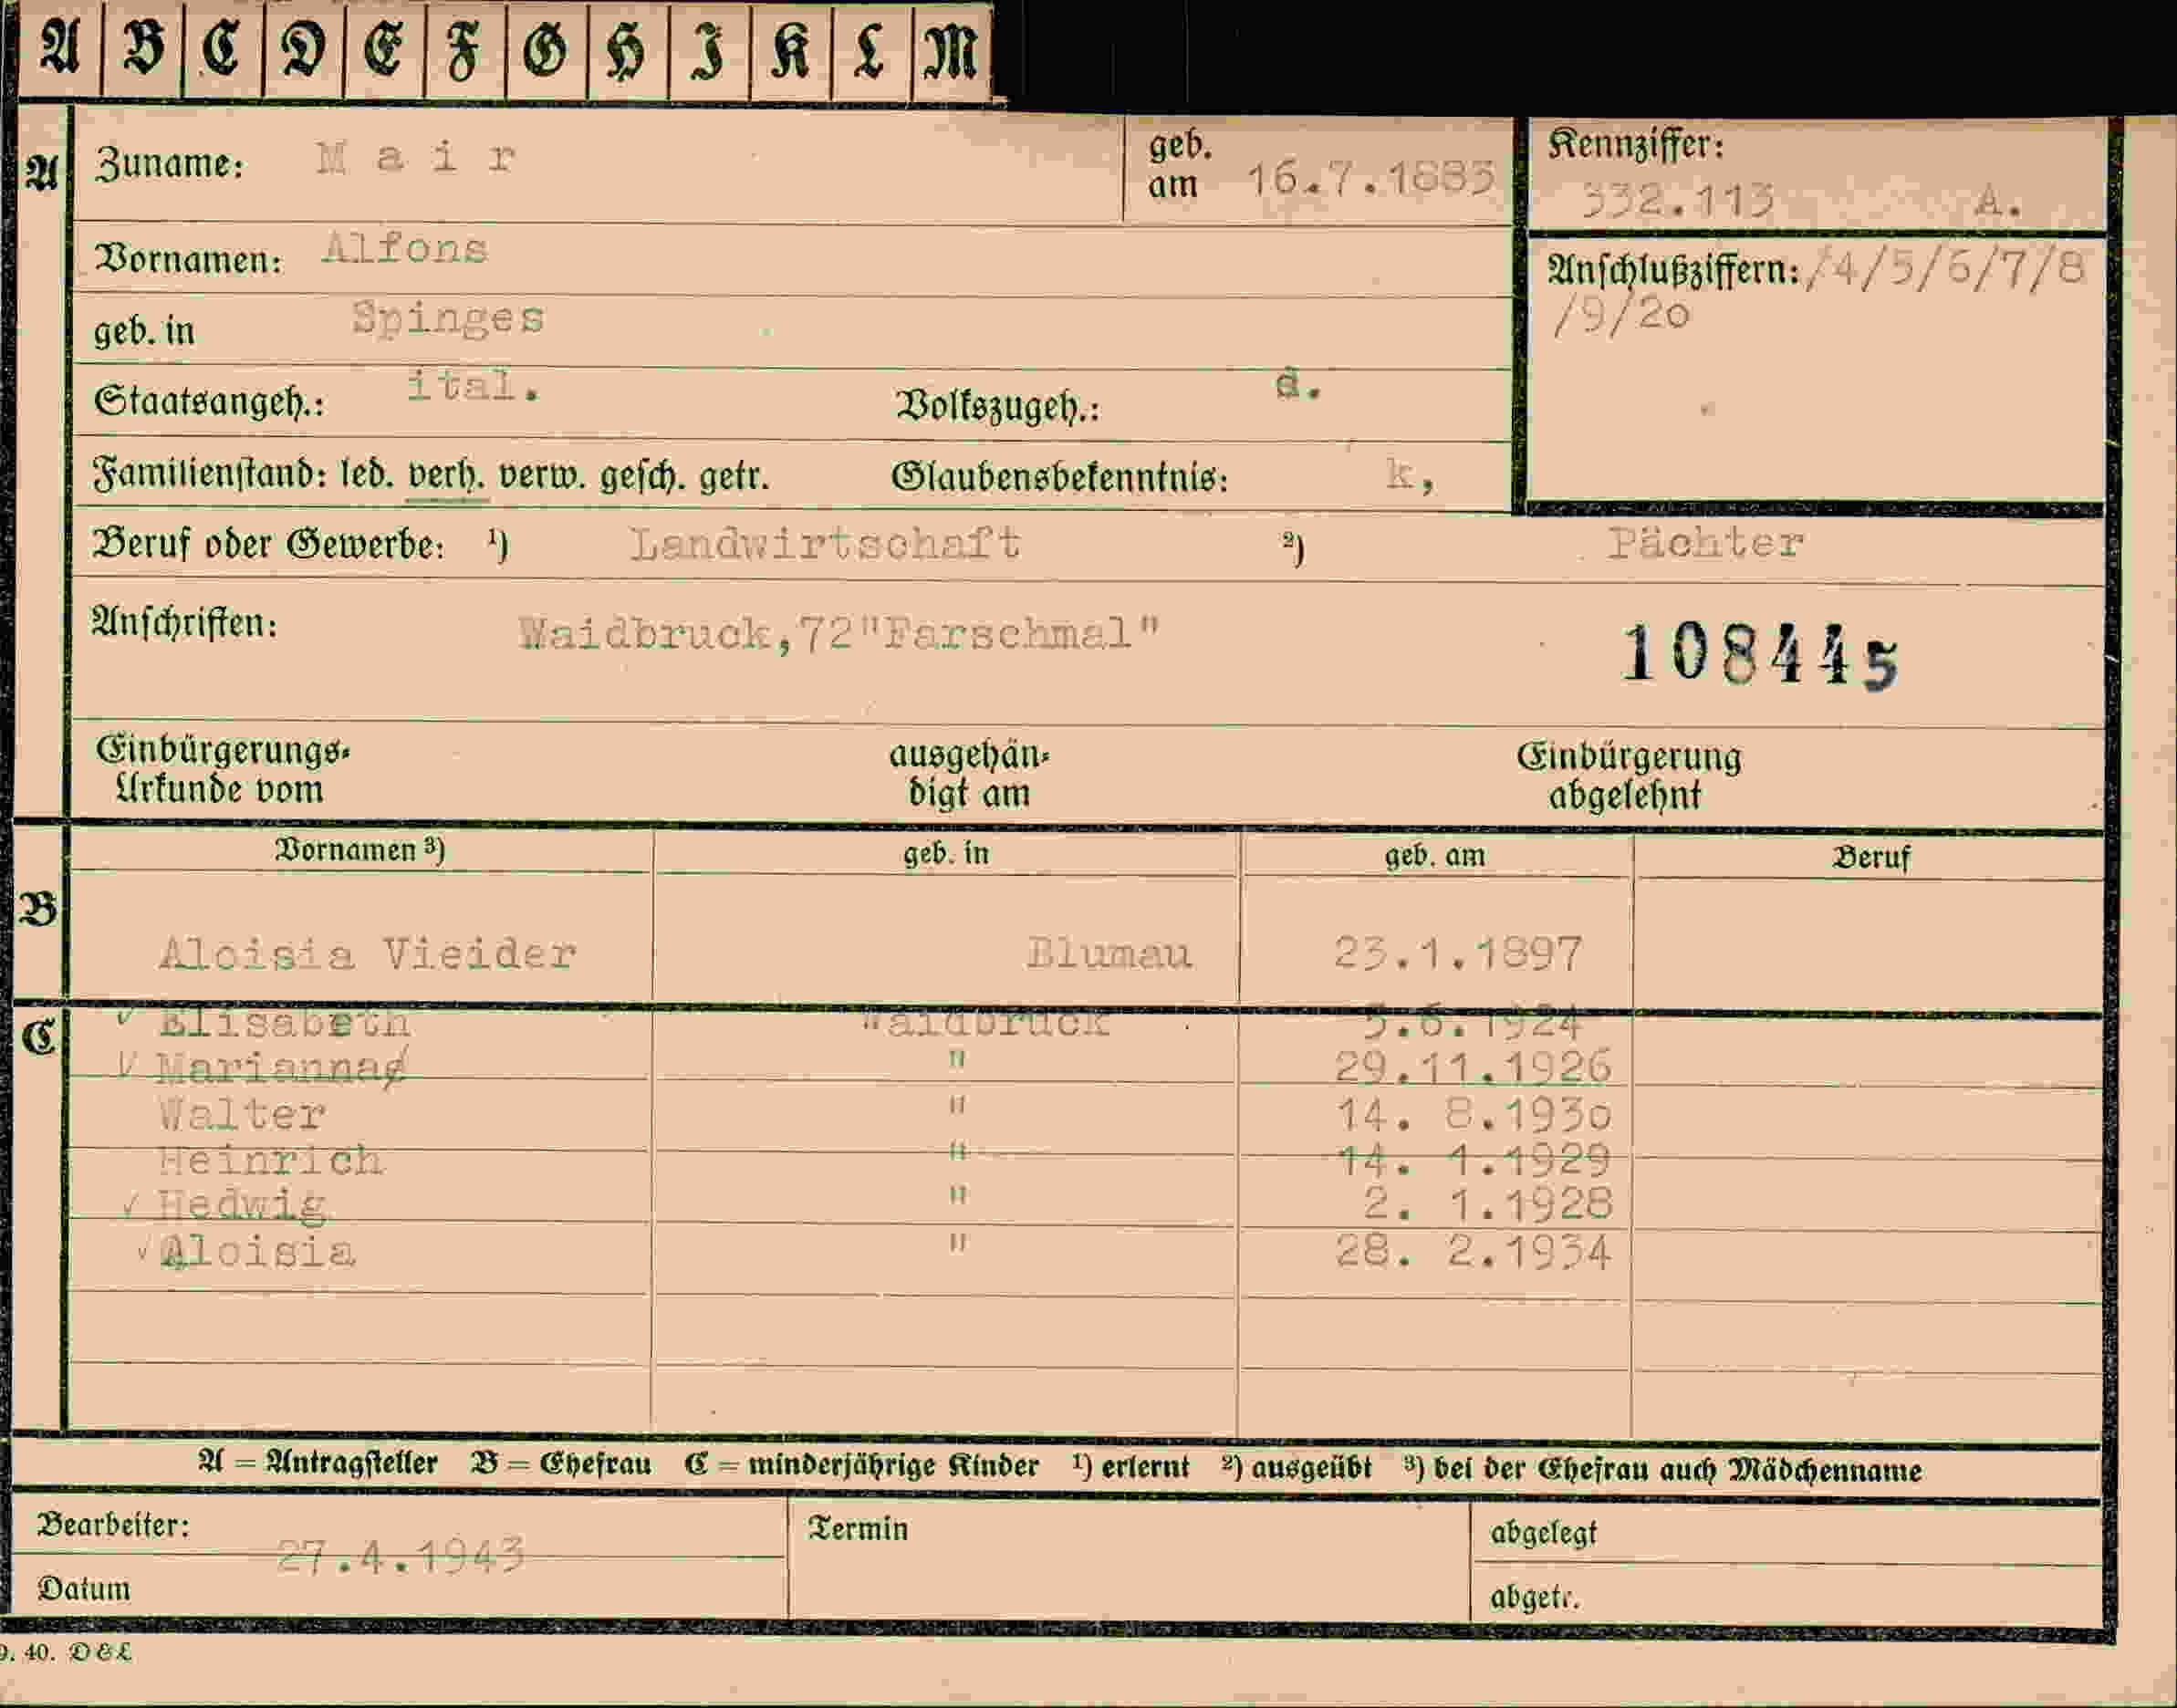 A B C D E F G H I K L M
A Zuname: Mair geb. am 16.7.1883 Kennziffer: 332.113 A.
Vornamen: Alfons Anschlußziffern: /4/5/6/7/8
/9/20
geb. in Spinges
Staatsangeh.: ital. Volkszugeh.: d.
Familienstand: led. verh. verw. gesch. getr. Glaubensbekenntnis: k,
Beruf oder Gewerbe: ¹) Landwirtschaft ²) Pächter
Anschriften: Waidbruck,72"Farschmal" 108445
Einbürgerungs- ausgehän- Einbürgerung
Urkunde vom digt am abgelehnt
Vornamen ³) geb. in geb. am Beruf
B
Aloisia Vieider Blumau 23.1.1897
C ✓ Elisabeth Waidbruck 5.6.1924
✓ Marianna " 29.11.1926
Walter " 14. 8.1930
Heinrich " 14. 1.1929
✓ Hedwig " 2. 1.1928
✓ Aloisia " 28. 2.1934
A = Antragsteller B = Ehefrau C = minderjährige Kinder ¹) erlernt ²) ausgeübt ³) bei der Ehefrau auch Mädchenname
Bearbeiter: Termin abgelegt
27.4.1943
Datum abgetr.
9. 40. D&L